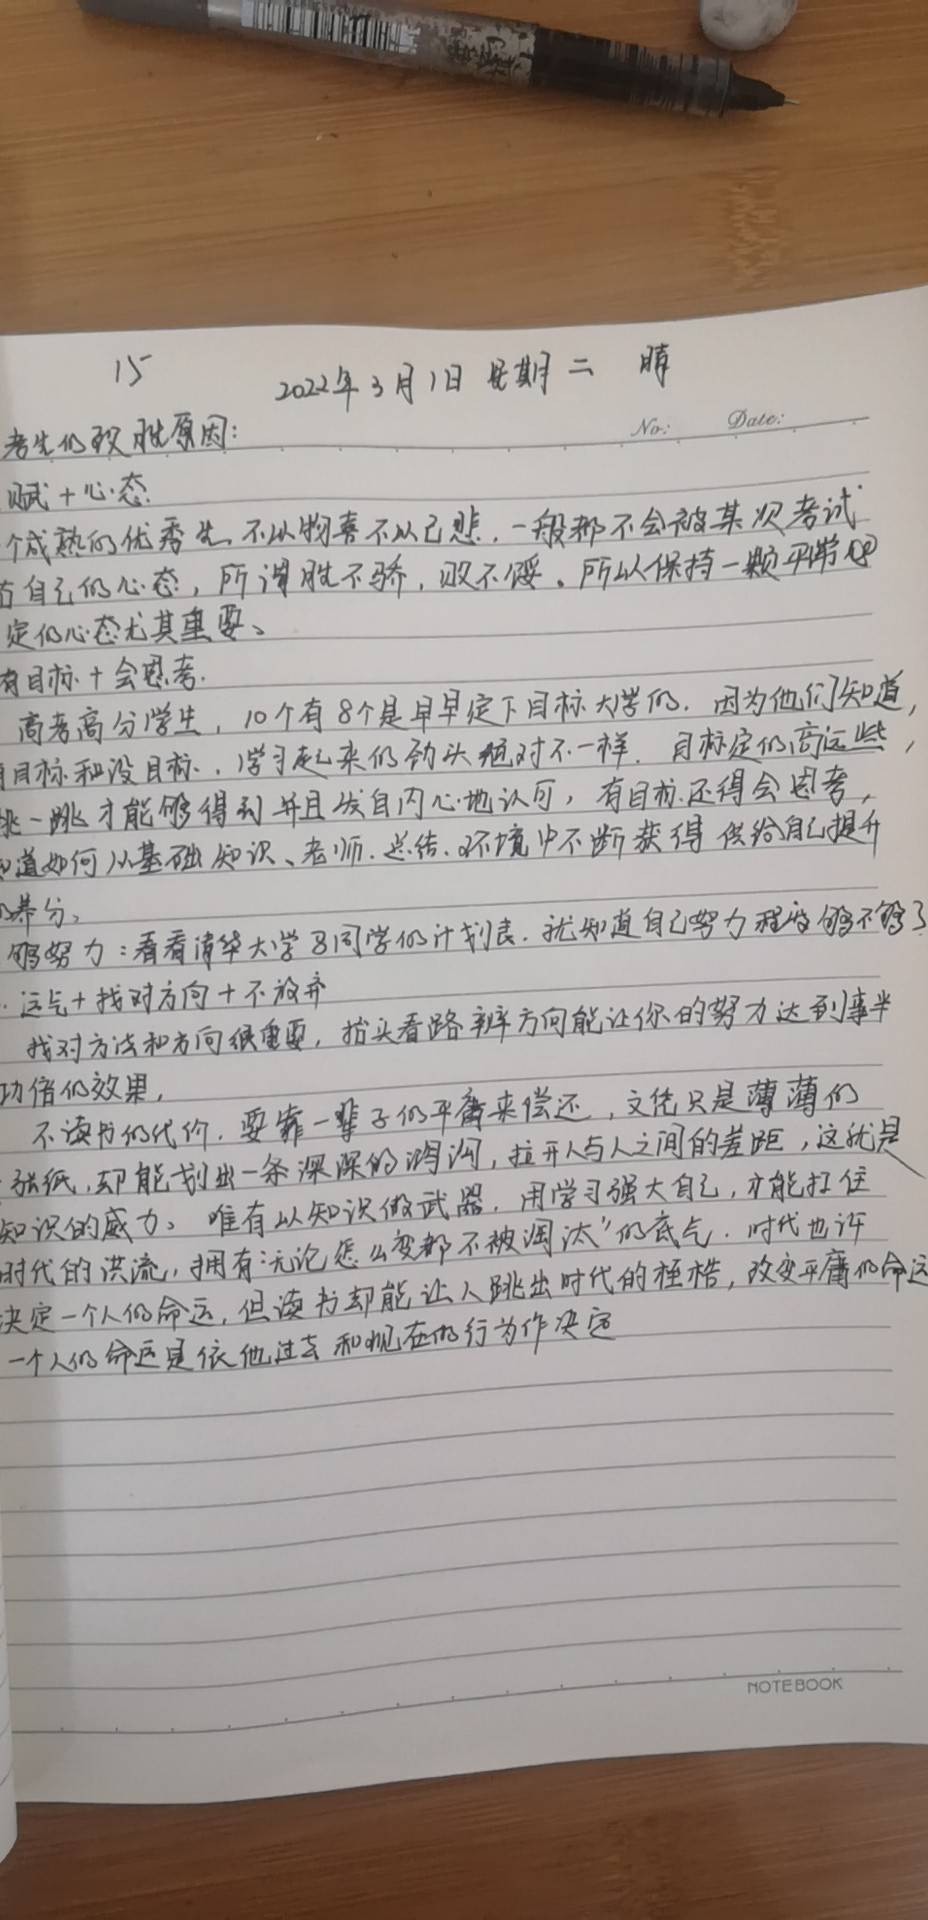 15
2022年3月1日 星期二 晴
No: Date:
考生的致胜原因:
赋+心态
个成熟的优秀生、不以物喜不以己悲,一般都不会被某次考试
自己的心态,所谓胜不骄,败不馁。所以保持一颗平常
定的心态尤其重要。
有目标+会思考.
高考高分学生,10个有8个是早早定下目标大学的.因为他们知道,
目标和没目标.,学习起来的劲头绝对不一样.目标定的高远些,
跳一跳才能够得到并且发自内心地认可,有目标还得会思考,
知道如何从基础知识、老师.总结.环境中不断获得供给自己提升
的养分。
够努力:看看清华大学的同学的计划表.就知道自己努力程度够不够了
.运气+找对方向+不放弃
找对方法和方向很重要,抬头看路辨方向能让你的努力达到事半
功倍的效果,
不读书的代价.要靠一辈子的平庸来偿还,文凭只是薄薄的
张纸,却能划出一条深深的鸿沟,拉开人与人之间的差距,这就是
知识的威力。唯有以知识做武器.用学习强大自己,才能扛住
时代的洪流,拥有:无论怎么变都不被淘汰"的底气.时代也许
决定一个人的命运,但读书却能让人跳出时代的桎梏,改变平庸的命运
一个人的命运是依他过去和现在的行为作决定
NOTEBOOK